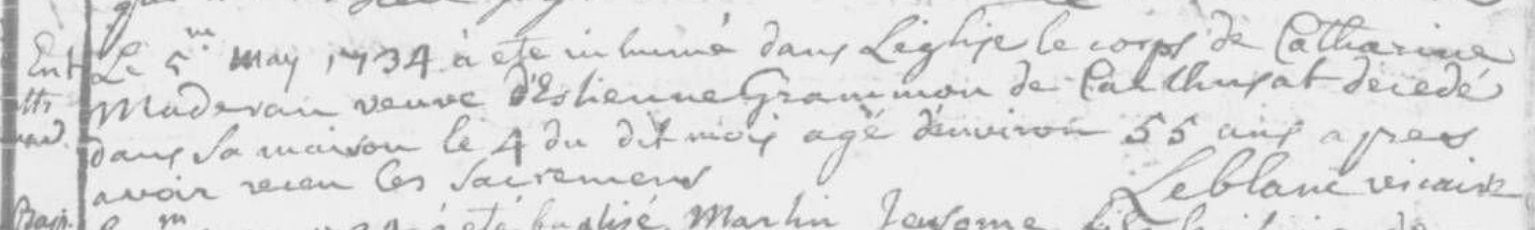 Ent
Le 5.m May 1734 à ete inhumé dans Leglise le corps de Catharine
Maderan veuve d'Estienne Grammon de decedé
dans sa maison le 4 du dit mois agé denviron 55 ans apres
avoir receu les sacremens
Leblanc vicaire
Bap.
été baptisé Martin